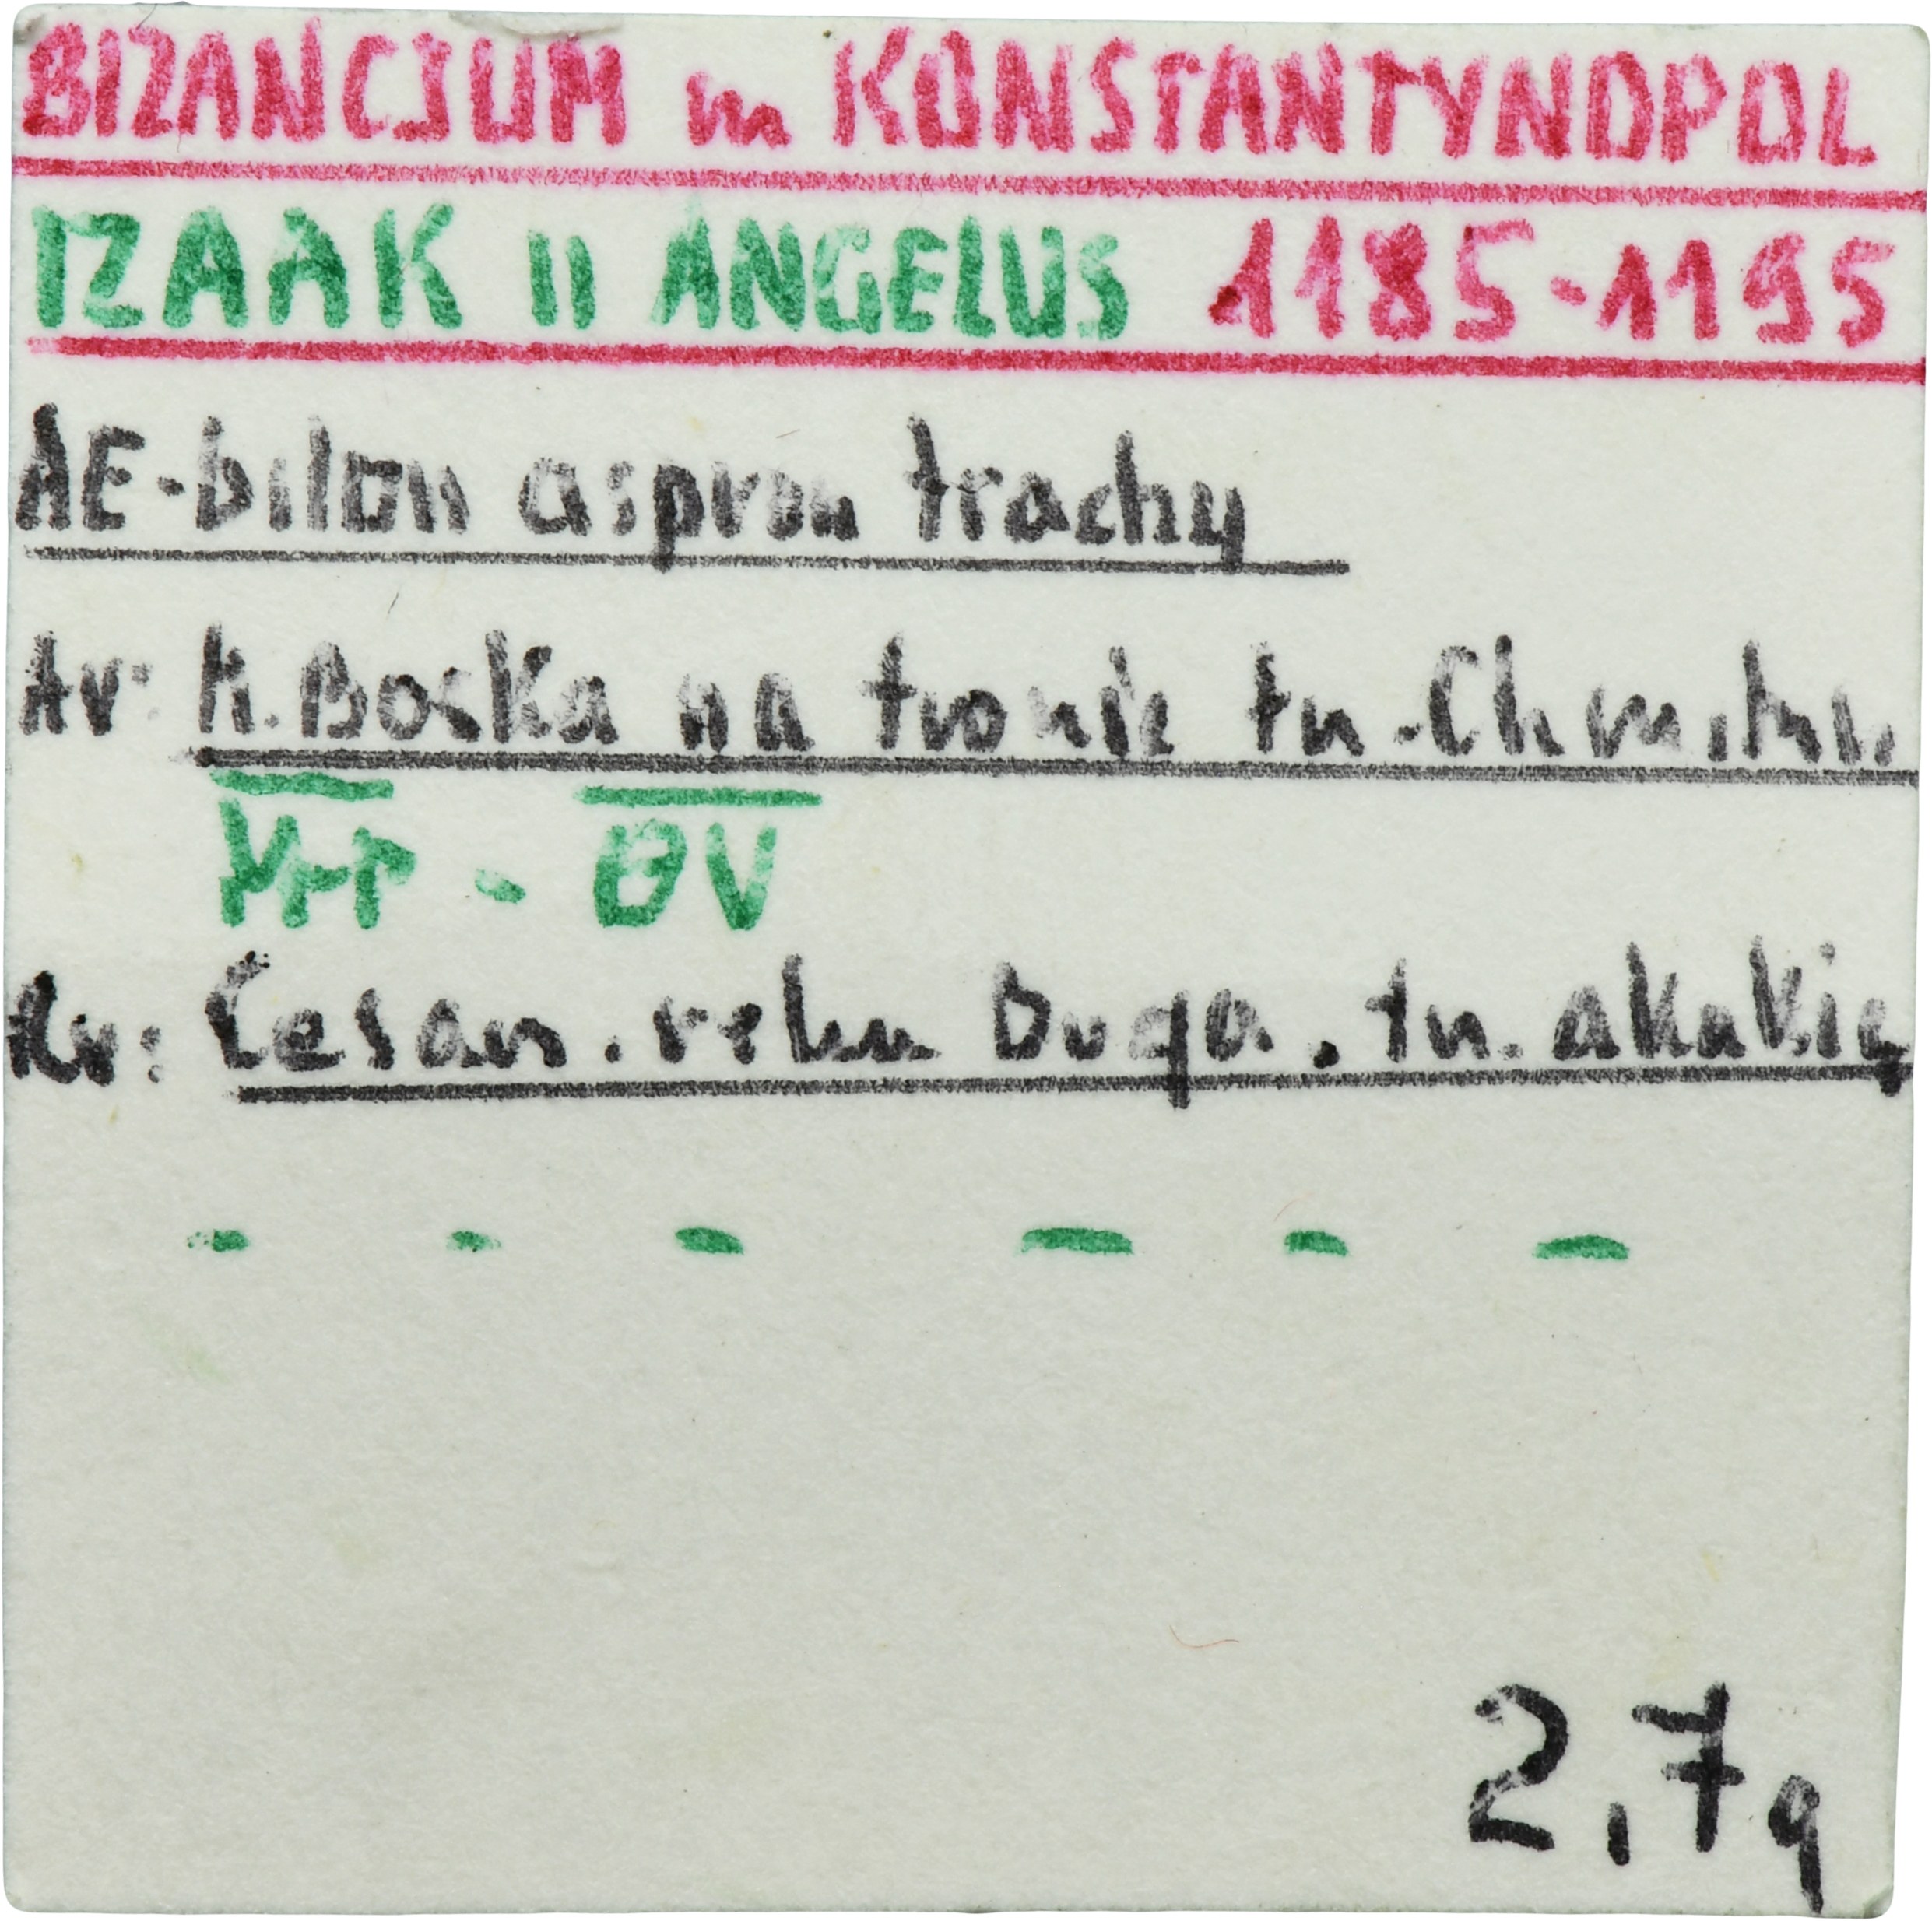 BIZANCJUM m KONSTANTYNOPOL
IZAAK II ANGELUS 1185-1195
AE-bilon aspron trachy
Av: M.Boska na tronie tn.
M̅H̅P̅ - Θ̅V̅
Rv: Cesarz. ręka Boga. tn. akakię
2,7g